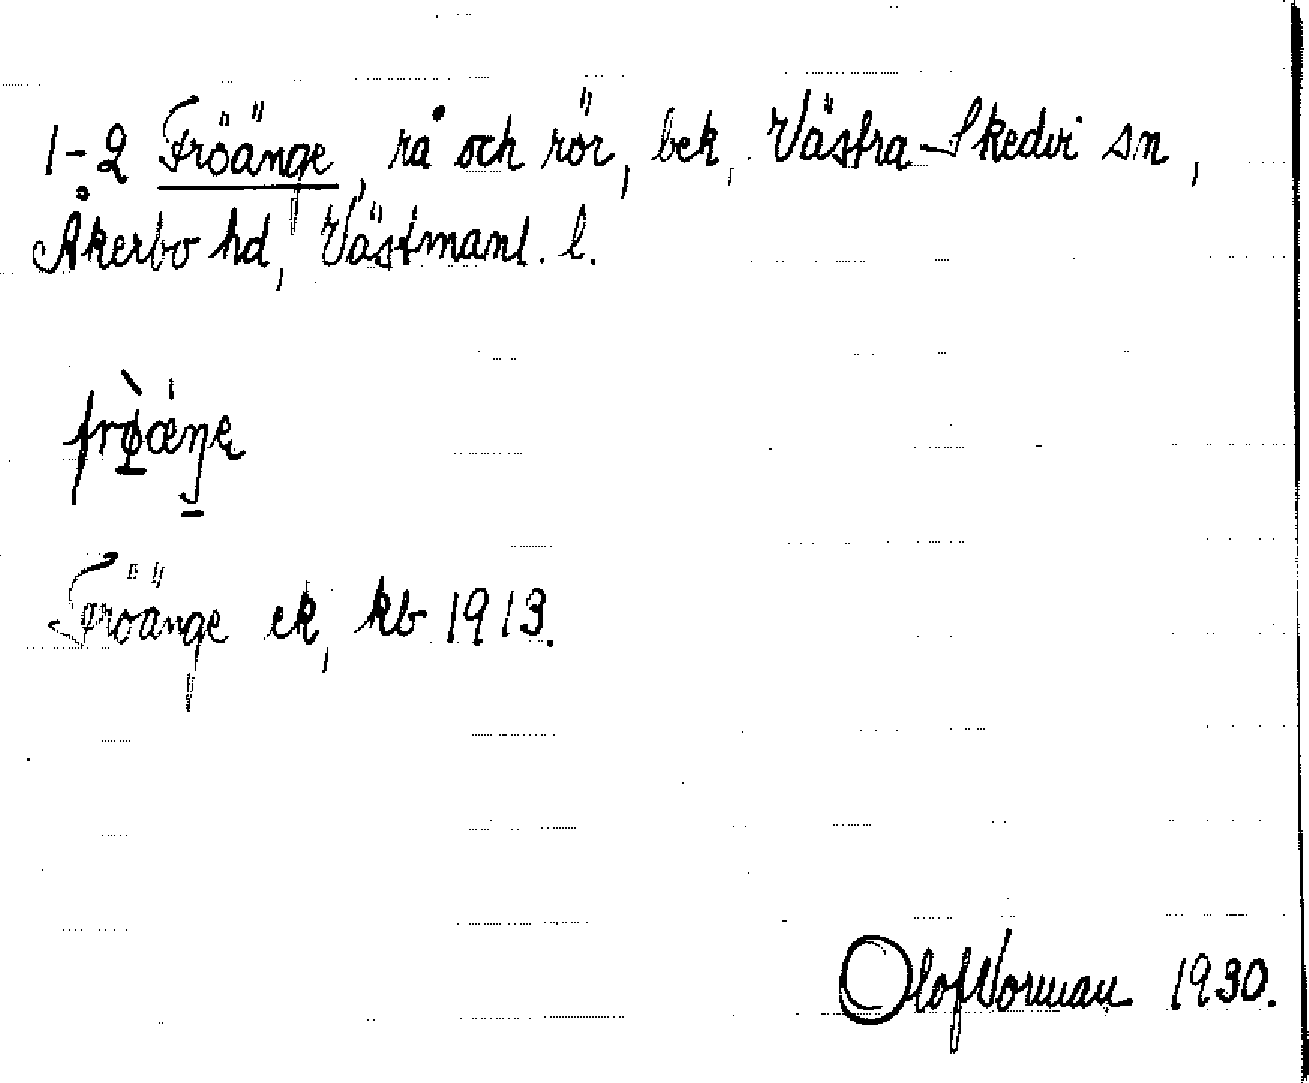 1-2 Fröänge, rå och rör, bek, Västra-Skedvi sn,
Åkerbo hd, Västmanl. l.
frø̀æŋe
Fröänge ek, kb 1913.
Olof Norman 1930.